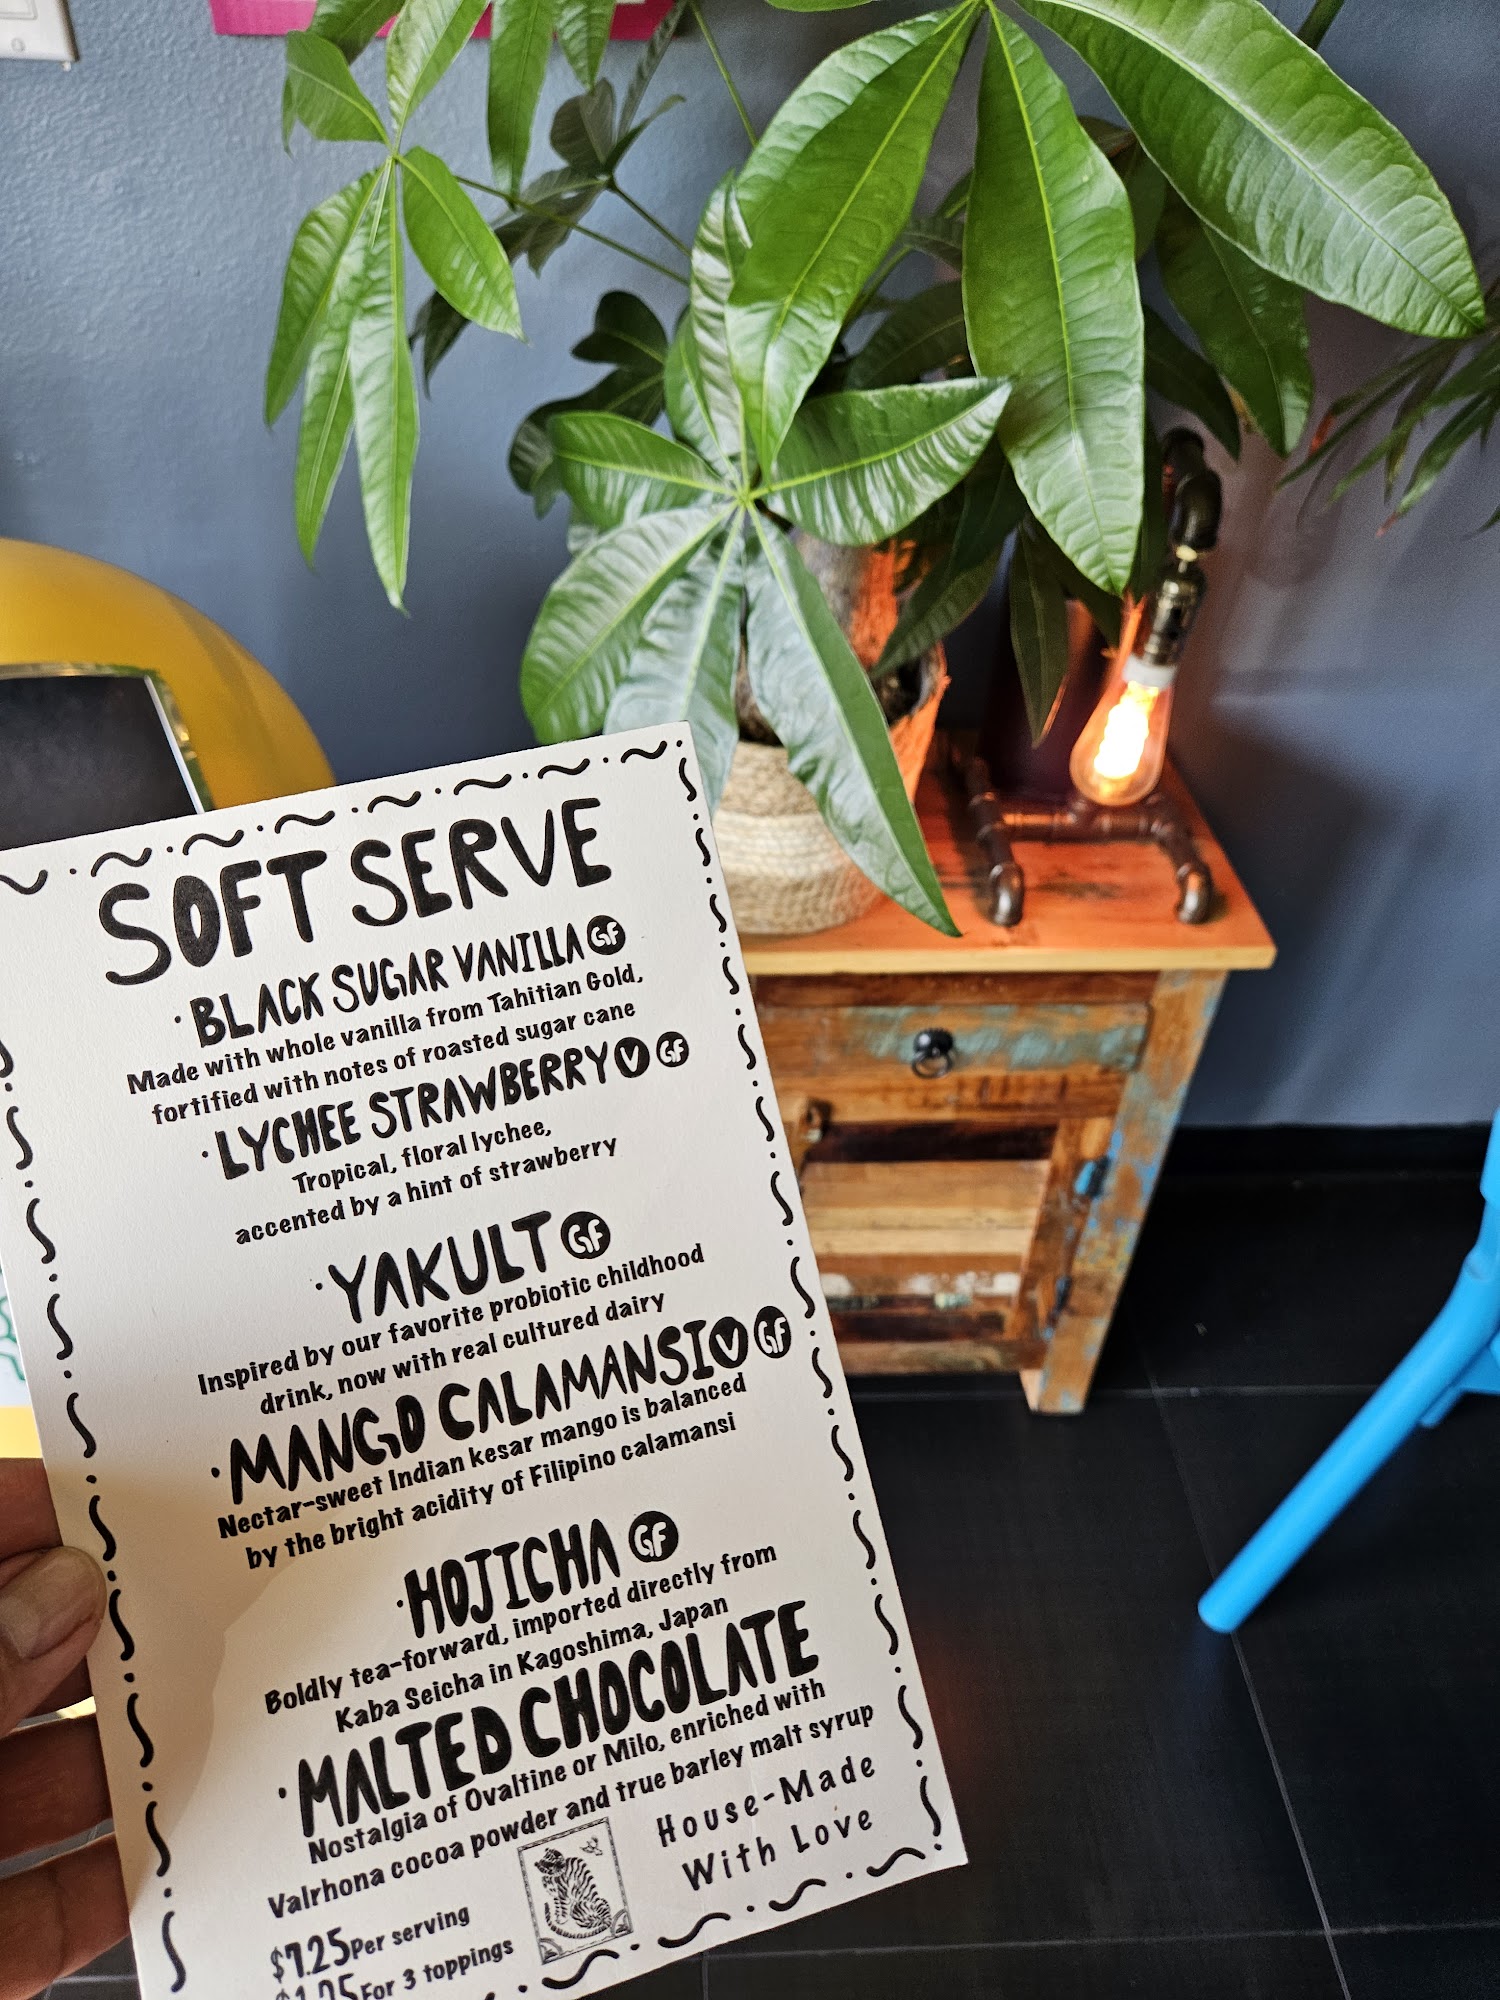 SOFT SERVE
· BLACK SUGAR VANILLA GF
Made with whole vanilla from Tahitian Gold,
fortified with notes of roasted sugar cane
· LYCHEE STRAWBERRY V GF
Tropical, floral lychee,
accented by a hint of strawberry
· YAKULT GF
Inspired by our favorite probiotic childhood
drink, now with real cultured dairy
· MANGO CALAMANSI V GF
Nectar-sweet Indian kesar mango is balanced
by the bright acidity of Filipino calamansi
· HOJICHA GF
Boldly tea-forward, imported directly from
Kaba Seicha in Kagoshima, Japan
· MALTED CHOCOLATE
Nostalgia of Ovaltine or Milo, enriched with
Valrhona cocoa powder and true barley malt syrup
House-Made
With Love
$7.25 Per serving
For 3 toppings